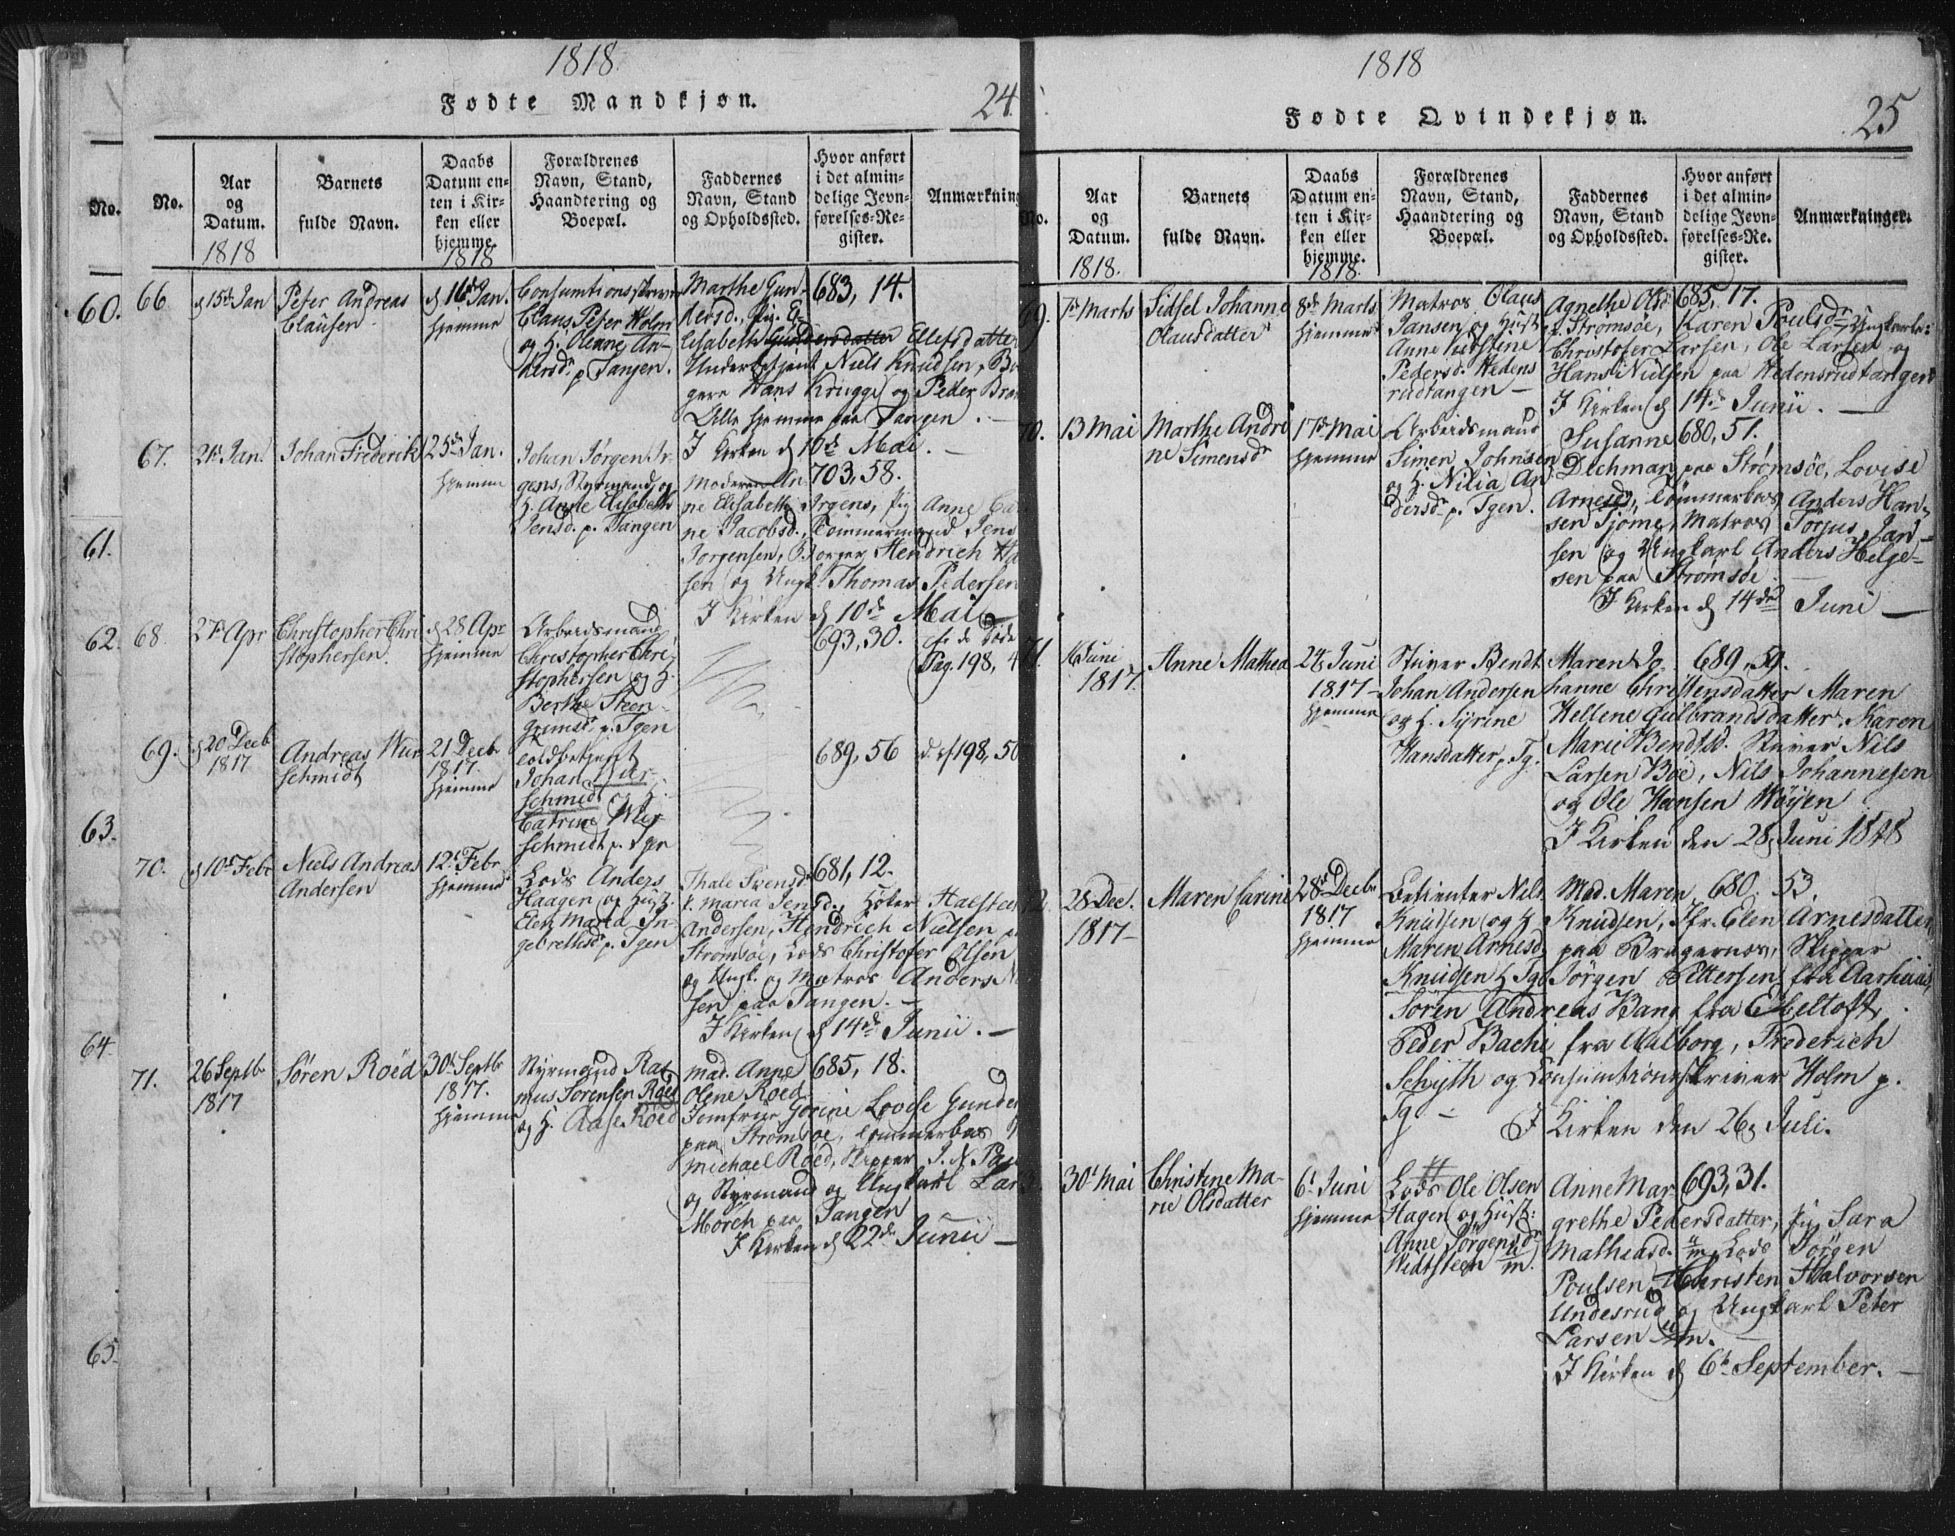 1818
Fødte Mandkjøn.
24
No.
No.
Aar og Datum.
1818
Barnets fulde Navn.
Daabs Datum enten i Kirken eller hjemme.
1818
Forældrenes Navn, Stand, Haandtering og Boepæl.
Faddernes Navn, Stand og Opholdssted.
Hvor anført i det almindelige Jevnførelses-Register.
Anmærkning
60.
61.
62.
63.
64.
65.
66
d 15de Jan
Peter Andreas
Clausen
d 16de Jan.
hjemme
Consumtionsskriver
Claus Peter Holm
og H. Olenne An-
kersd. p Tangen.
Marthe Gun-
dersd., Pig. E-
lisabeth Gundersdatter Ellefsdatter
Underbetjent Niels Knudsen, Bor
gere Hans Krigge og Peder Bra
Alle hjemme paa Tangen.
I Kirken d 10de Mai.
683, 14.
67.
21de Jan.
Johan Frederik
25de Jan.
hjemme
Johan Jørgen Jr-
gens, Styrmand, og
H. Anne Elisabeth
Jensd. p. Tangen
Moderen An
ne Elisabeth Irgens, Pig Anne Ca
ne Jacobsd., Tømmermand Jens
Jørgensen, Borger Hendrich
sen og Ungk. Thomas Pedersen
I Kirken d 10de Mai
703, 58.
68.
27de Apr
Christopher Chri
stophersen.
d 28 Apr
hjemme
Arbeidsmand
Christopher Chri-
stophersen og H.
Berthe Steen-
grimsdr p. Tgen
693, 30.
cf. de Døde
Pag. 198, 4
69.
d 20 Decb
1817
Andreas Wur
schmidt
21 Decb
1817.
hjemme
Toldbetjent
Johan Wur-
schmidt & H.
Catrine Wur
schmidt p. Tgen
689, 56
d. cf 198, 50
70.
d 10de Febr
Niels Andreas
Andersen
12te Febr
hjemme
Lods Anders
Haagen og Hust:
Elen Maria In-
gebrethsdr p. Tgen
Thale Svensdr
k. Maria Jensd., Høker Halsteen
Andersen, Hendrich Nielsen p
Strømsøe, Lods Christofer Olsen
og Ungk. og Matros Anders N
sen paa Tangen.
I Kirken d 14de Junii.
681, 12.
71.
26 Septbr
1817
Søren Roëd
30te Septbr
1817.
hjemme
Styrmand Ras
mus Sørensen Roëd
og H. Aase Roëd
Mad. Anne
Olene Roëd
Jomfrue Gorine Lovise Gunder
paa Strømsøe, Tømmerbas
Michael Roëd, Skipper J. N. Pay
og Styrmand og Ungkarl Lar
Morch paa Tangen
I Kirken d 22de Junii
685, 18.
1818
Fødte Qvindekjøn.
25
No.
Aar og Datum.
1818.
Barnets fulde Navn.
Daabs Datum enten i Kirken eller hjemme.
1818.
Forældrenes Navn, Stand, Haandtering og Boepæl.
Faddernes Navn, Stand og Opholdssted.
Hvor anført i det almindelige Jevnførelses-Re. gister.
Anmærkninger.
69.
7de Marts
Sidsel Johanne
Olausdatter
8de Marts
hjemme
Matros Olaus
Jansen og Hust
Anne Kirstine
Pedersd. Hedens
rudtangen
Agnethe Olsd 685, 17.
p. Strømsøe, Karen Poulsdr, Ungkarle:
Christofer Larsen, Ole Larsen og
Hans Nielsen paa Hedensrudtangen
I Kirken d 14de Junii.
70.
13 Mai
Marthe Andri
ne Simensdr
17de Mai
hjemme
Arbeidsmand
Simen Johnsen
og H. Nilia An
dersdr p. Tgen.
Susanne 680, 51.
Dechman paa Strømsøe, Lovise
Arnesdr, Tømmerbas Anders Han-
sen Tjome, Matros Torjus Jan-
sen og Ungkarl Anders Helge-
sen paa Strømsøe
I Kirken d 14de Juni
71.
16 Juni
1817.
Anne Mathea
24 Juni
1817
hjemme
Stuver Bendt
Johan Andersen
og H. Syrine
Hansdatter p. Tg.
Maren Jo- 689, 59.
hanne Christensdatter Maren
Hellene Gulbrandsdatter, Karen
Marie Bendtsd. Stuver Nils
Larsen Böe, Nils Johannesen
og Ole Hansen Höyen
I Kirken den 28 Juni 1818
72.
28 Dec.
1817
Maren Carine
28de Decbr
1817
hjemme
Betienter Nils
Knudsen og H
Maren Arnesd
Knudsen H Tg
Mad. Maren 680. 53.
Knudsen, Jfr. Elen Arnesdatter,
paa Bragernæs, Skipper
Jörgen Pettersen fra Aarhuus,
Sören Andreas Bang fra Ebeltoft,
Peder Bache fra Aalborg, Froderich
Schyth og Consumtionsskriver Holm p.
Tg.
I Kirken den 26 Juli.
30te Mai
Christine Ma-
rie Olsdatter
6te Juni
hjemme
Lods Ole Olsen
Hagen og Hust:
Anne Jørgensdr
Hvidsteen
Anne Mar- 693, 31.
grethe Pedersdatter, Pig Sara
Mathiasd. Lods Jörgen
Poulsen, Christen Halvorsen
Undesrud og Ungkarl Peter
Larsen
I Kirken d 6te September.